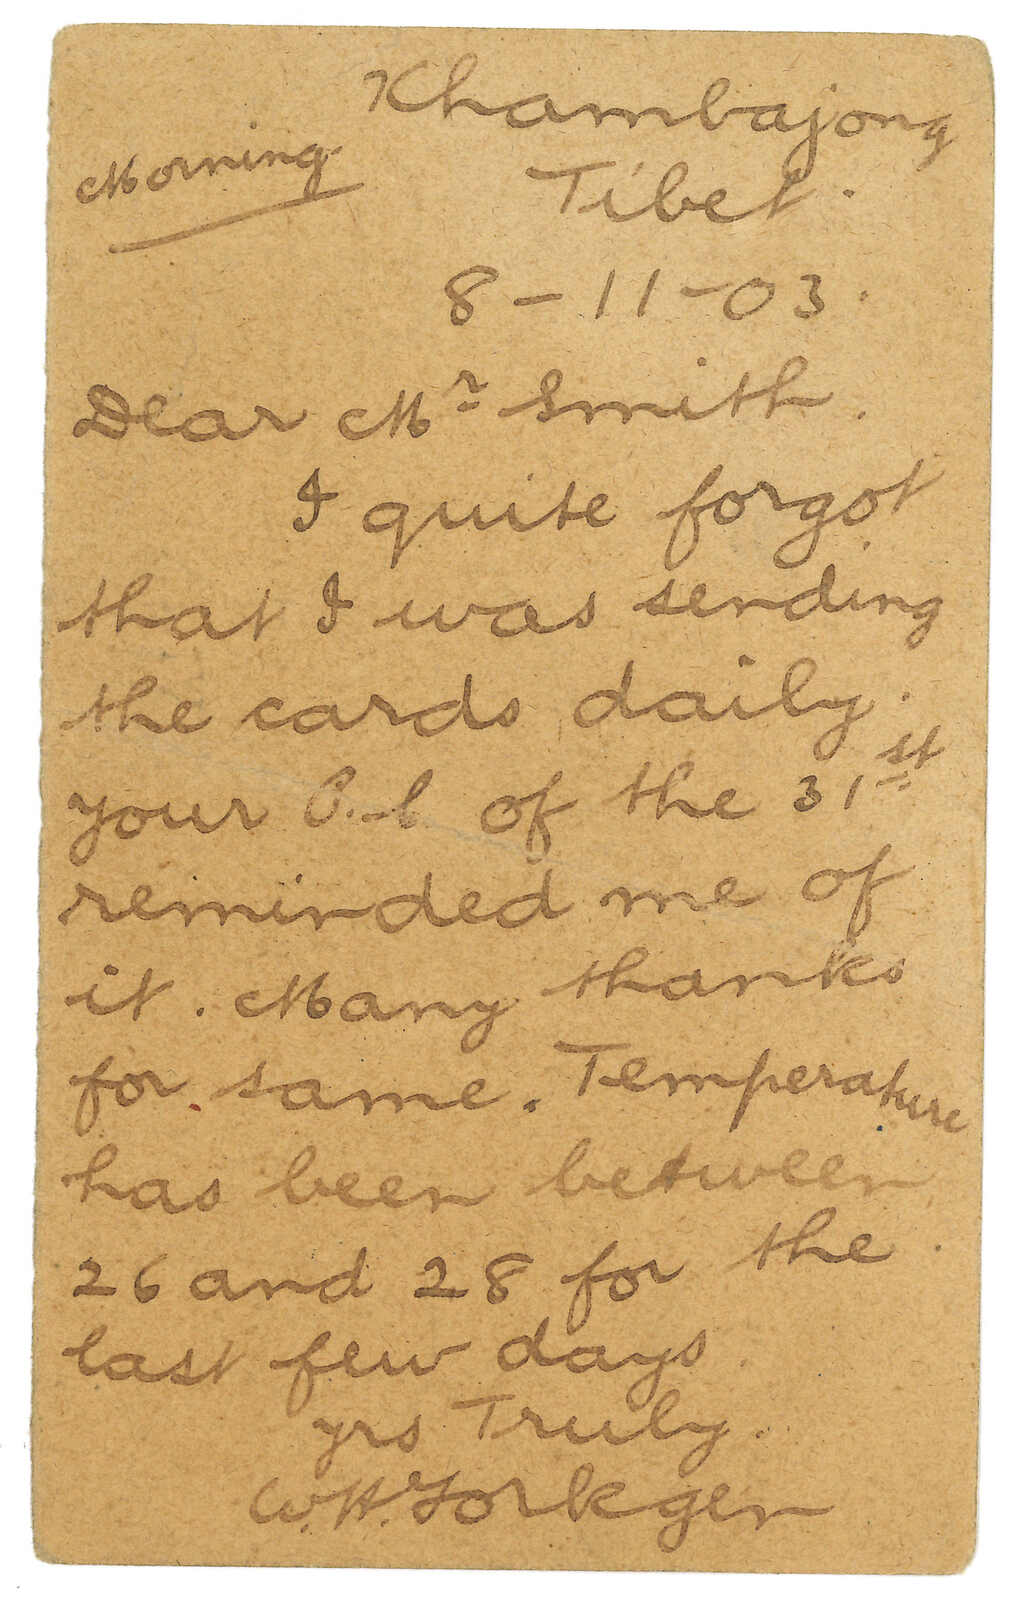 Khambajong
Morning
Tibet.
8-11-03.
Dear Mr Smith.
I quite forgot
that I was sending
the cards daily.
your P.C. of the 31st
reminded me of
it. Many thanks
for same. Temperature
has been between
26 and 28 for the
last few days.
yrs Truly.
W.H.